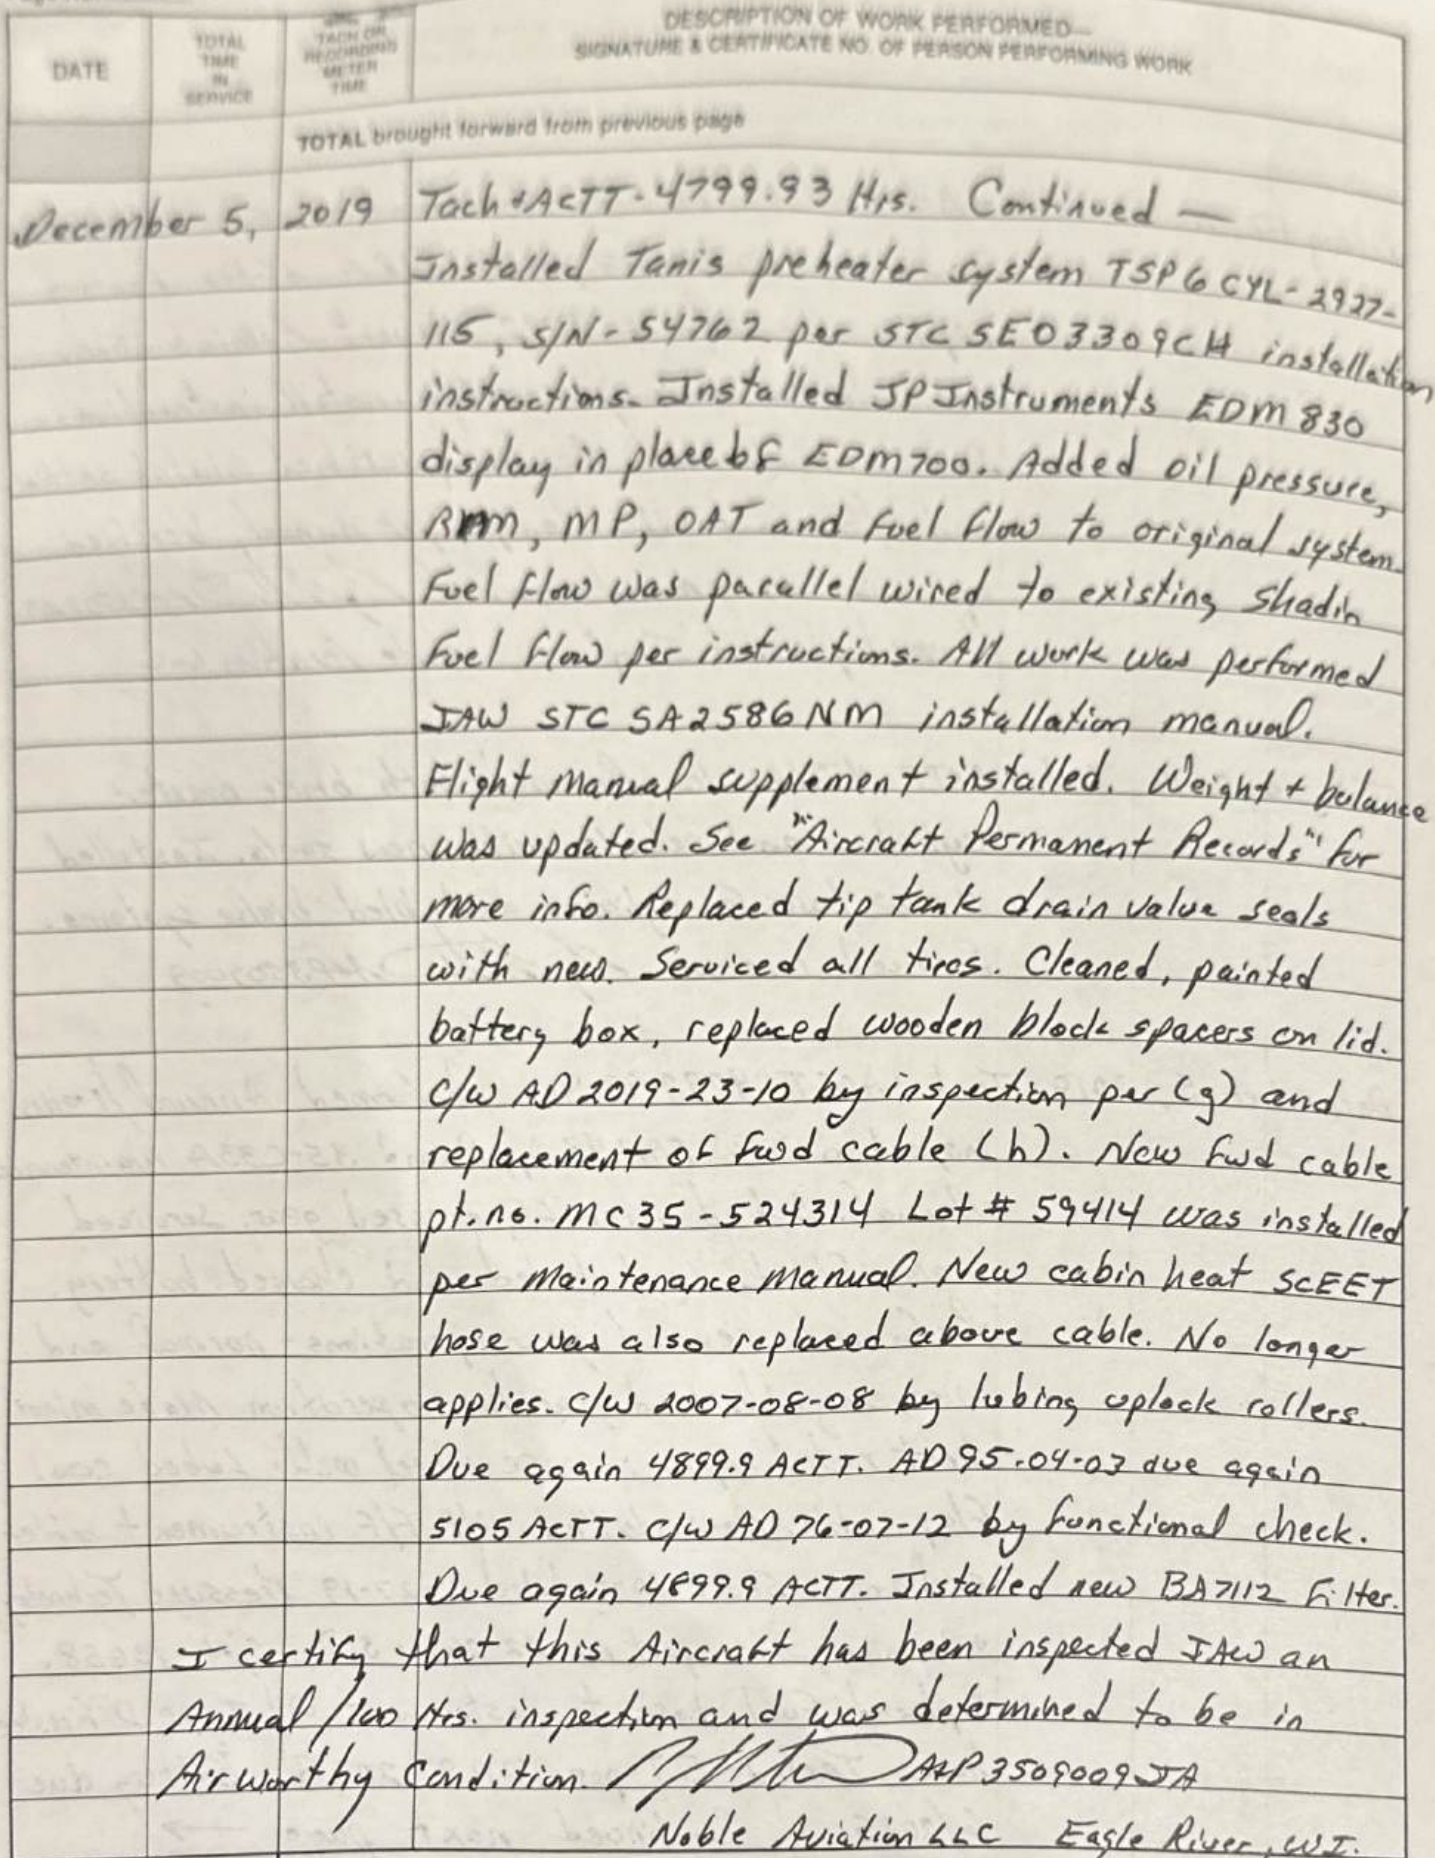 DATE
TOTAL TIME IN SERVICE
TACH OR RECORDING METER TIME
DESCRIPTION OF WORK PERFORMED
SIGNATURE & CERTIFICATE NO. OF PERSON PERFORMING WORK
TOTAL brought forward from previous page
December 5, 2019 Tach & ACTT-4799.93 Hrs. Continued —
Installed Tanis preheater system TSP6CYL-2927-
115, S/N-54762 per STC SE03309CH installation
instructions. Installed JP Instruments EDM 830
display in place of EDM700. Added oil pressure,
RPM, MP, OAT and fuel flow to original system.
Fuel flow was parallel wired to existing Shadin
Fuel flow per instructions. All work was performed
IAW STC SA2586NM installation manual.
Flight Manual supplement installed. Weight + balance
was updated. See "Aircraft Permanent Records" for
more info. Replaced tip tank drain value seals
with new. Serviced all tires. Cleaned, painted
battery box, replaced wooden block spacers on lid.
C/W AD 2019-23-10 by inspection per (g) and
replacement of fwd cable (h). New fwd cable
pt. no. MC35-524314 Lot # 59414 was installed
per Maintenance Manual. New cabin heat SCEET
hose was also replaced above cable. No longer
applies. C/W 2007-08-08 by lubing uplock rollers.
Due again 4899.9 ACTT. AD 95-04-03 due again
5105 ACTT. C/W AD 76-07-12 by functional check.
Due again 4899.9 ACTT. Installed new BA7112 Filter.
I certify that this Aircraft has been inspected IAW an
Annual/100 Hrs. inspection and was determined to be in
Airworthy Condition. A&P 3509009 IA
Noble Aviation LLC Eagle River, WI.